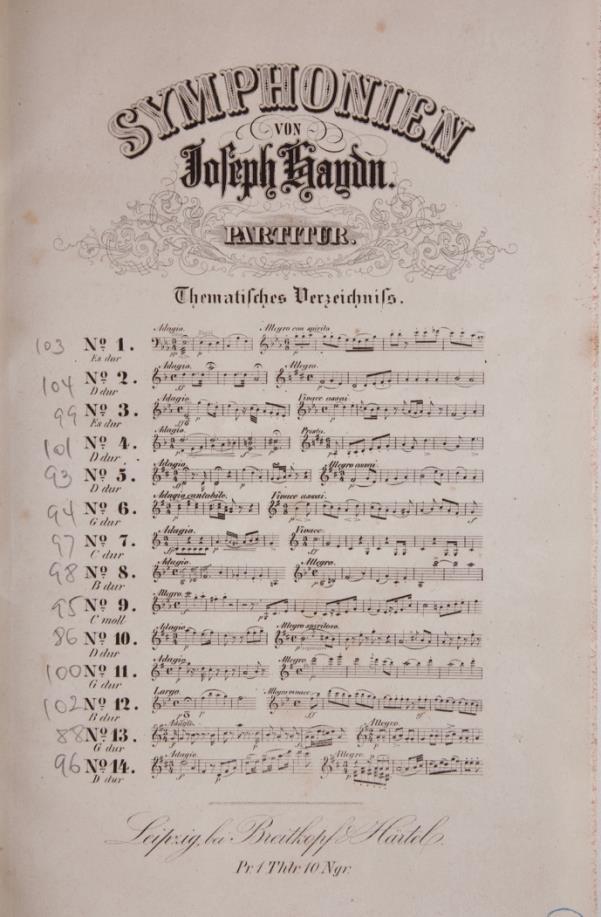 SYMPHONIEN
VON
Joseph Haydn.
PARTITUR.
Thematisches Verzeichniss.
Adagio. Allegro con spirito
103 No 1.
Es dur
Adagio. Allegro.
104 No 2.
D dur
Adagio. Vivace assai
99 No 3.
Es dur
Adagio. Presto.
101 No 4.
D dur
Adagio. Allegro assai.
93 No 5.
D dur
Adagio cantabile. Vivace assai.
94 No 6.
G dur
Adagio. Vivace.
97 No 7.
C dur
Adagio. Allegro.
98 No 8.
B dur
Allegro.
95 No 9.
C moll
Adagio Allegro spiritoso.
86 No 10.
D dur
Adagio. Allegro
100 No 11.
G dur
Largo. Allegro vivace.
102 No 12.
B dur
Adagio. Allegro.
88 No 13.
G dur
Adagio. Allegro.
96 No 14.
D dur
Leipzig, bei Breitkopf & Härtel.
Pr. 1 Thlr 10 Ngr.